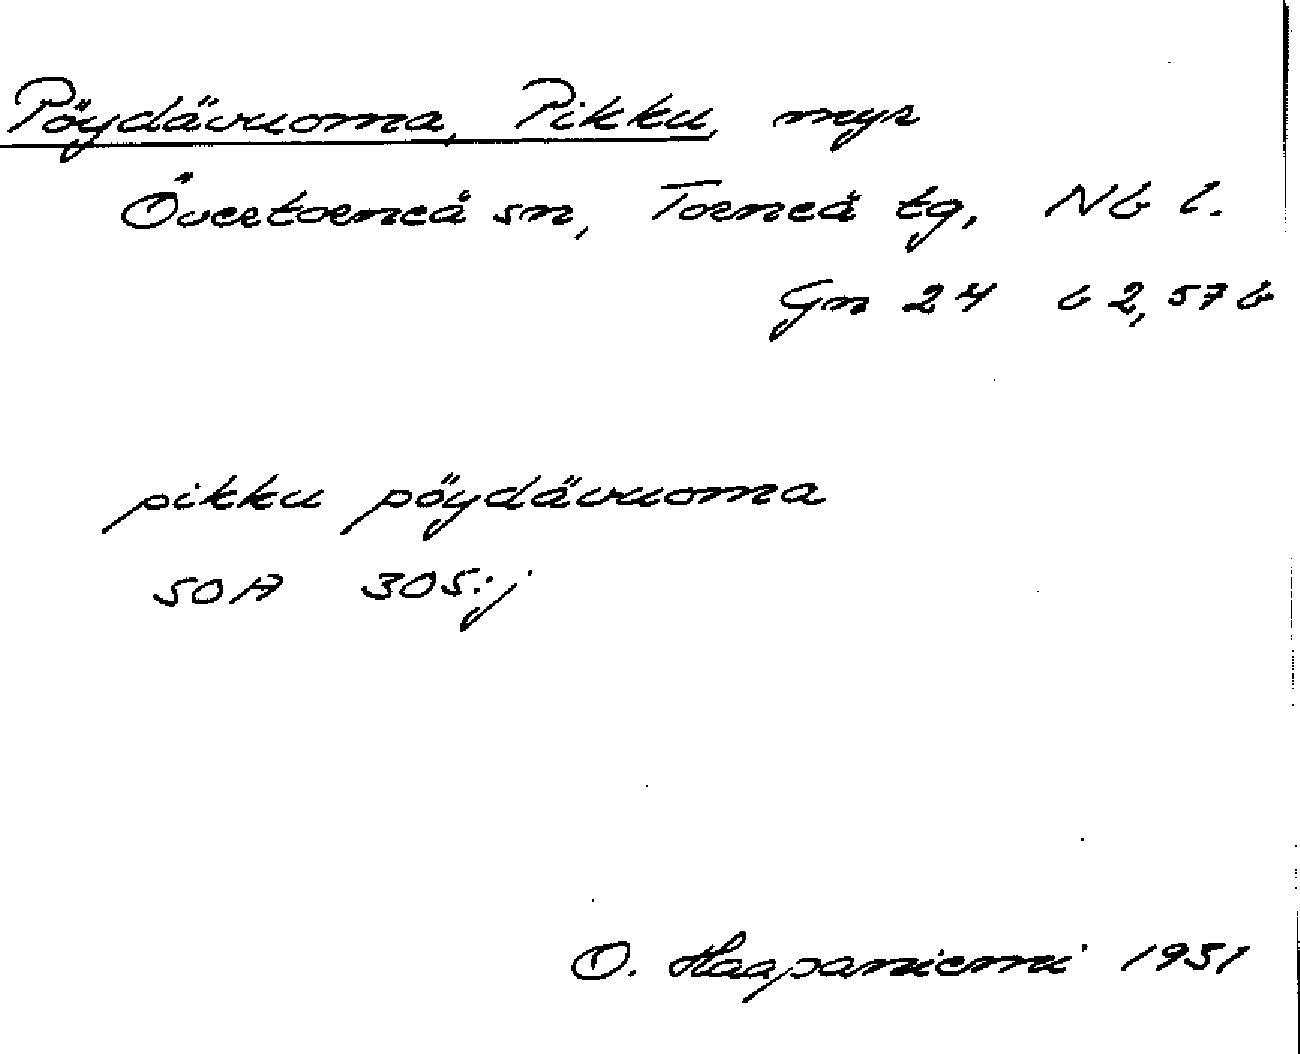 Pöydävuoma, Pikku, myr
Övertorneå sn, Torneå tg, Nb l.
Gn 24 b 2,57 b
pikku pöydävuoma
SOA 305:j
O. Haapaniemi 1951